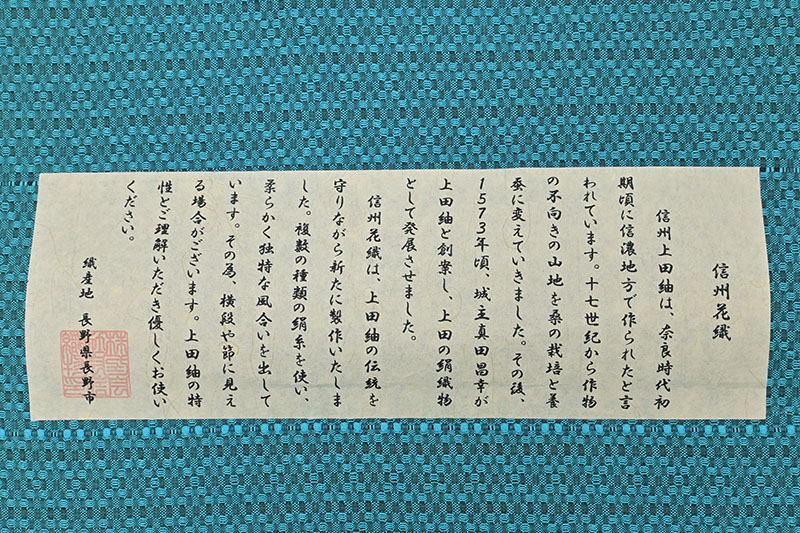 信州花織
信州上田紬は、奈良時代初
期頃に信濃地方で作られたと言
われています。十七世紀から作物
の不向きの山地を桑の栽培と養
蚕に変えていきました。その後、
1573年頃、城主真田昌幸が
上田紬と創案し、上田の絹織物
として発展させました。
信州花織は、上田紬の伝統を
守りながら新たに製作いたしま
した。複数の種類の絹糸を使い、
柔らかく独特な風合いを出して
います。その為、横段や節に見え
る場合がございます。上田紬の特
性とご理解いただき優しくお使い
ください。
織産地 長野県長野市